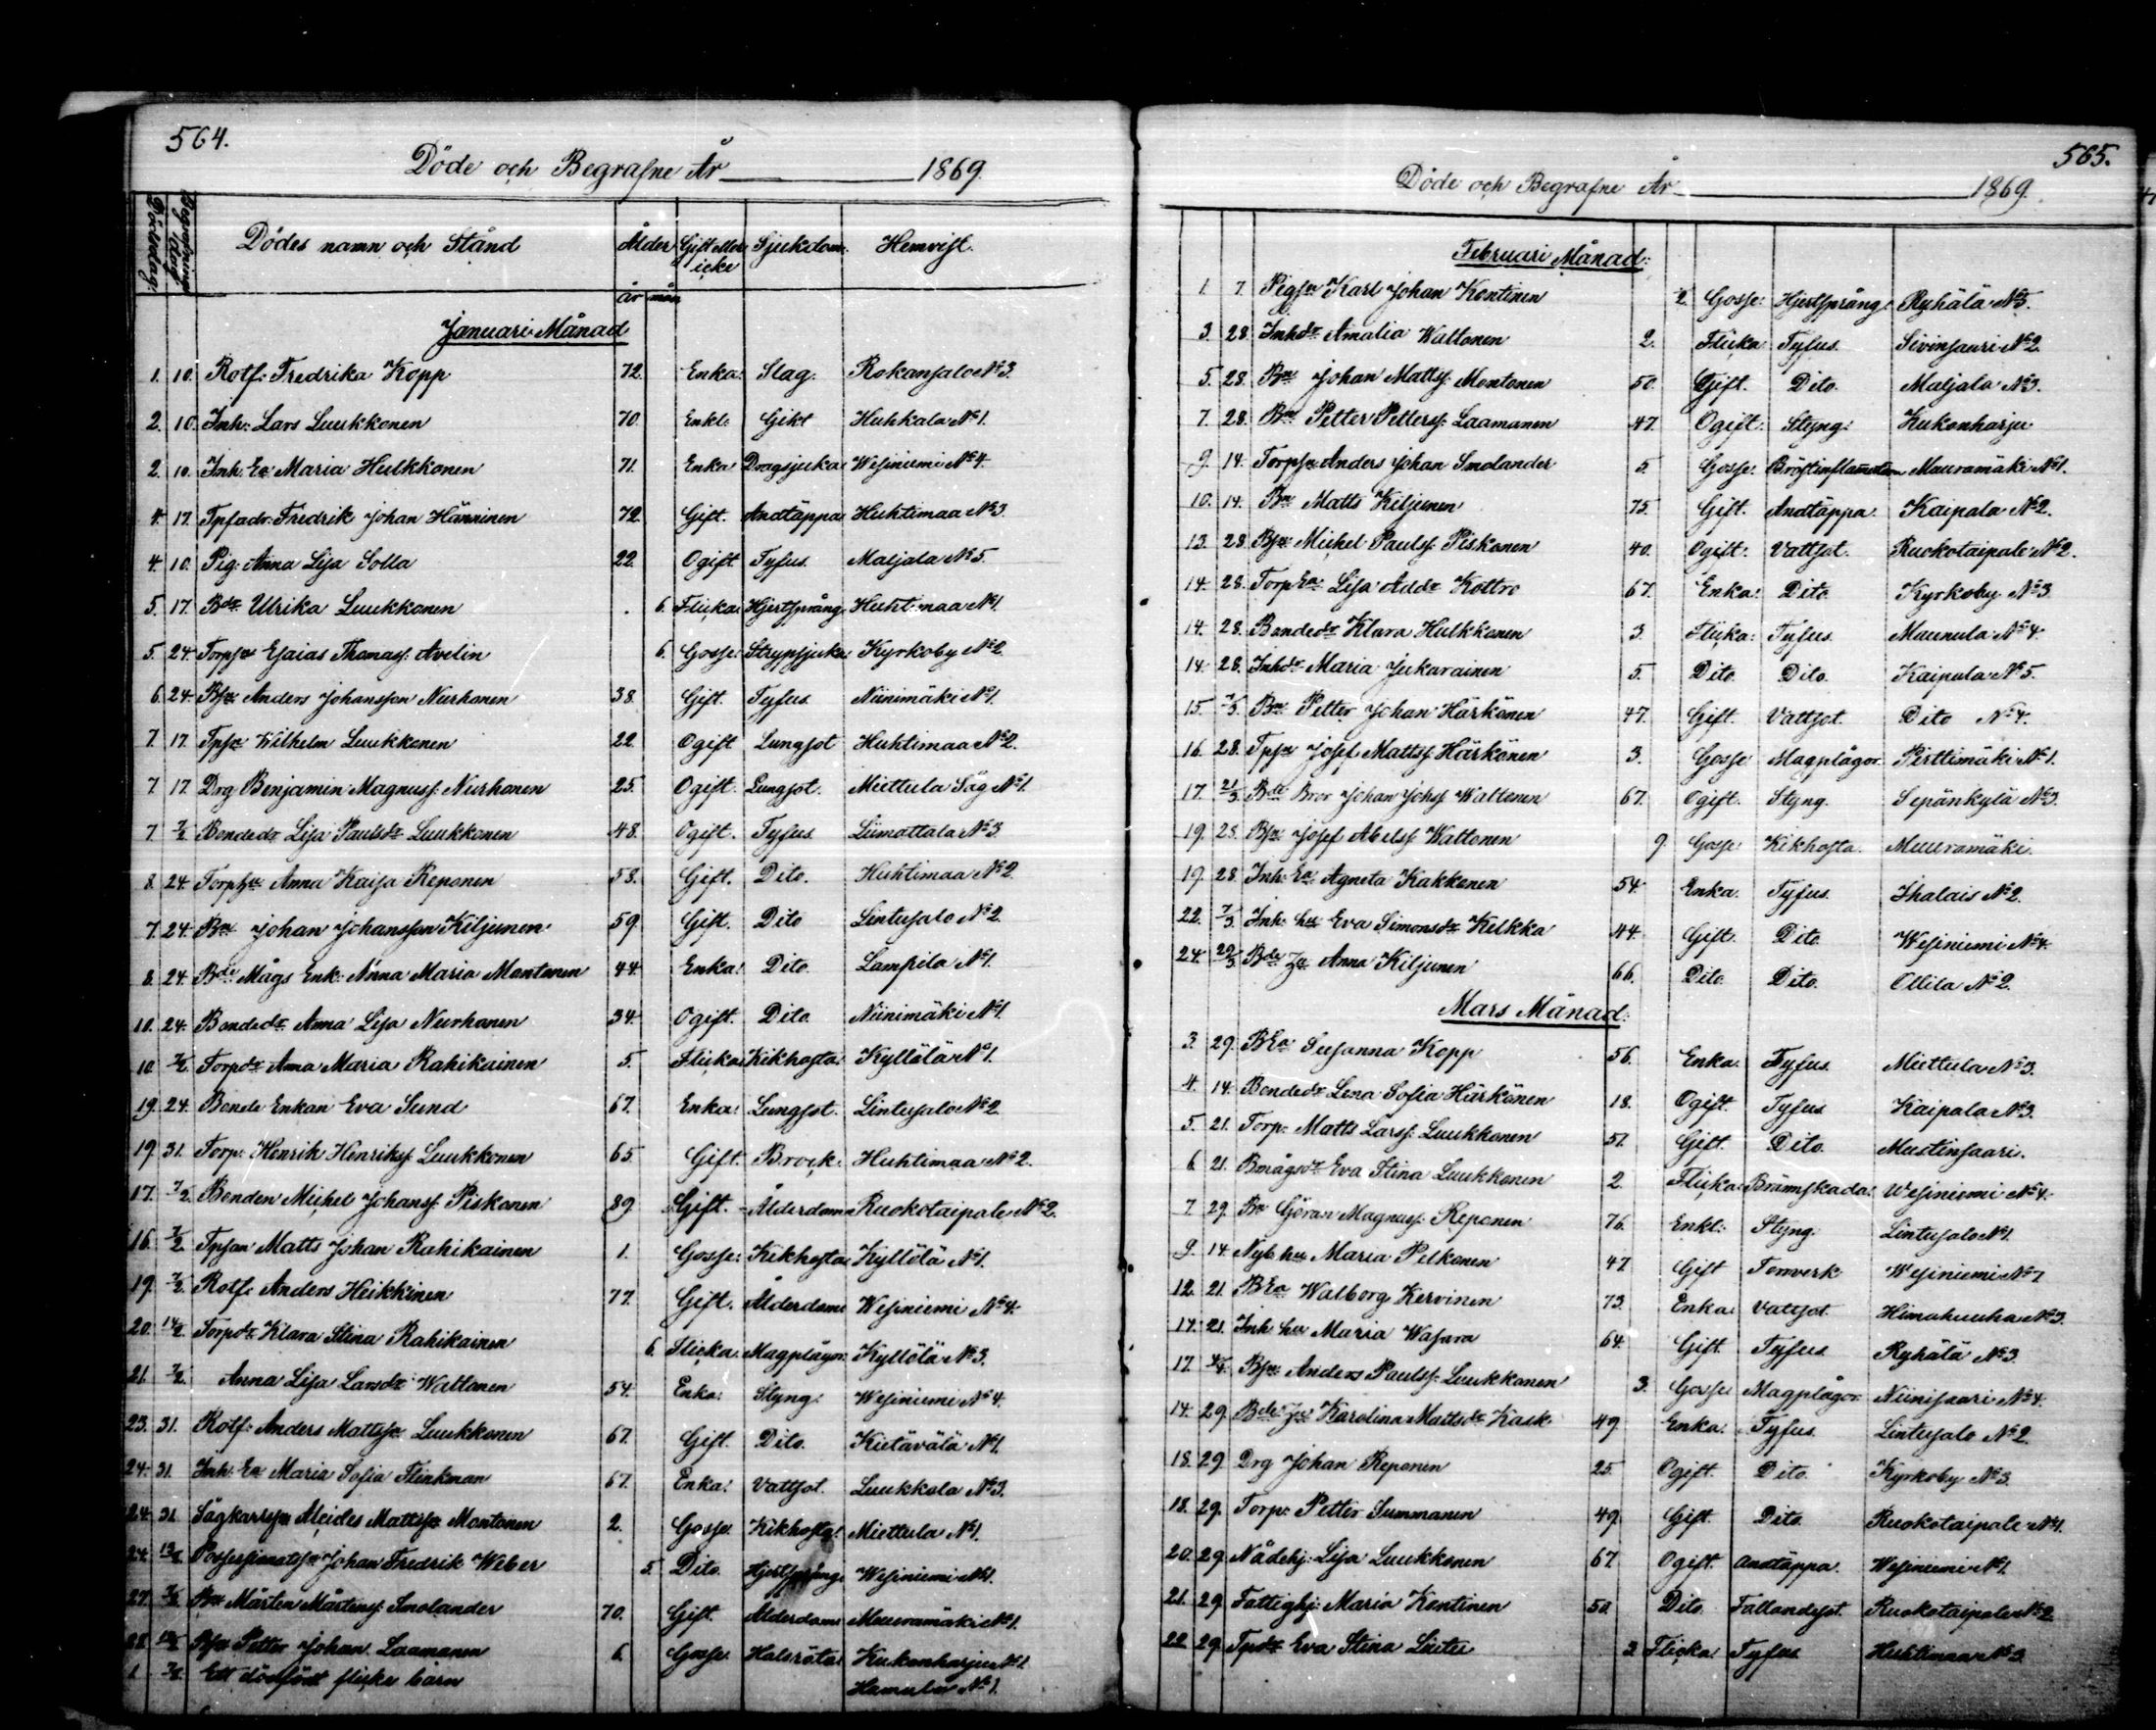 564.
Döde och Begrafne År 1869.
Dödsdag: Begrafnings dag: Dödes namn och Stånd Ålder Gift eller icke Sjukdom: Hemvist.
år mån
Januari Månad
1. 10. Rotf: Fredrika Kopp 72. Enka: Slag. Rokansalo No 3.
2. 10. Inh: Lars Luukkonen 70. Enkl: Gikt Huhkala No 1.
2. 10. Inh: Ea Maria Hulkkonen 71. Enka: Dragsjuka Wesiniemi No 4.
4. 17. Tpfadr: Fredrik Johan Hänninen 72. Gift. Andtäppa Huhtimaa No 3.
4. 10. Pig: Anna Lisa Solla 22. Ogift Tyfus. Maljala No 5.
5. 17. Bdr Ulrika Luukkonen . 6. Flicka: Hjertsprång Huhtimaa No 1.
5. 24. Torpsn Esaias Thomass: Avelin 6. Gosse: Strypsjuka Kyrkoby No 2.
6. 24. Bsn: Anders Johansson Nurhonen 38. Gift. Tyfus. Niinimäki No 1.
7. 17. Tpsn Wilhelm Luukkonen 22. Ogift Lungsot Huhtimaa No 2.
7. 17. Drg Benjamin Magnuss: Nurhonen 25. Ogift. Lungsot. Miettula Såg No 1.
7. 7/2 Bondedr Lisa Paulsdr Luukkonen 48. Ogift. Tyfus Liimattala No 3
8. 24. Torphu Anna Kaisa Reponen 58. Gift. Dito. Huhtimaa No 2.
7. 24. Bn Johan Johansson Kiljunen 59. Gift. Dito Lintusalo No 2.
8. 24. Bde: Mågs Enk: Anna Maria Montonen 44. Enka: Dito. Lampila No 1.
10. 24. Bondedr Anna Lisa Nurhonen 34. Ogift. Dito. Niinimäki No 1.
10. 7/2 Torpdr Anna Maria Rahikainen 5. Flicka: Kikhosta: Kyllölä No 1.
19. 24. Bonde Enkan Eva Sund 67. Enka: Lungsot. Lintusalo No 2.
19. 31. Torp: Henrik Henrikss: Luukkonen 65. Gift. Brock. Huhtimaa No 2.
17. 7/2 Bonden Michel Johanss: Piskonen 89. Gift. Ålderdom Ruokotaipale No 2.
16. 7/2 Tpson Matts Johan Rahikainen 1. Gosse: Kikhosta Kyllölä No 1.
19. 7/2 Rotf: Anders Heikkinen 77. Gift. Ålderdom Wesiniemi No 4.
20. 14/2 Torpdr Klara Stina Rahikainen 6. Flicka. Magplågor Kyllölä No 3.
21. 7/2 Anna Lisa Larsdr Waltonen 54. Enka: Styng: Wesiniemi No 4.
23. 31. Rotf: Anders Mattss: Luukkonen 67. Gift. Dito. Kietävälä No 1.
24. 31. Inh: Ea Maria Sofia Flinkman 67. Enka: Vattsot. Luukkala No 3.
24. 31. Sågkarlsn Alcides Mattss: Montonen 2. Gosse. Kikhosta: Miettula No 1.
24. Possessionatsn Johan Fredrik Weber 5. Dito. Hjertsprång Wesiniemi No 1.
27. 7/2 Bn Mårten Mårtenss: Smolander 70. Gift. Ålderdom Muuramäki No 1.
28. Bsn Petter Johan Laamanen 6. Gosse. Halsröta: Kukonharju No 1.
1. Ett dödfödt flicke barn Hamula No 1.
565.
Döde och Begrafne År 1869.
Februari Månad:
1. 7. Pigsn Karl Johan Kontinen 2. Gosse: Hjertsprång: Ryhälä No 3.
3. 28. Inhdr Amalia Waltonen 2. Flicka: Tyfus. Sivinsaari No 2.
5. 28. Bn Johan Mattss: Montonen 50. Gift. Dito. Maljala No 3.
7. 28. Bn Petter Petterss: Laamanen 47. Ogift: Styng: Kukonharju
9. 14. Torpsn Anders Johan Smolander 5. Gosse: Bröstinflammation Muuramäki No 1.
10. 14. Bn Matts Kiljunen 75. Gift. Andtäppa. Kaipala No 2.
13. 28. Bsn: Michel Paulss: Piskonen 40. Ogift: Vattsot. Ruokotaipale No 2.
14. 28. Torp Ea Lisa Addr Koltro 67. Enka: Dito. Kyrkoby No 3.
14. 28. Bondedr Klara Hulkkonen 3. Flicka: Tyfus. Maunula No 4.
14. 28. Inhdr Maria Jukarainen 5. Dito. Dito. Kaipala No 5.
15. 7/3. Bn: Petter Johan Härkönen 47. Gift. Vattsot. Dito No 4.
16. 28. Tpsn Josef Mattss Härkönen 3. Gosse Magplågor. Pirttimäki No 1.
17. 21/3 Bde Bror Johan Johss Waltonen 67. Ogift. Styng. Sepänkylä No 3.
19. 28. Bsn: Josef Abelss: Waltonen 9. Gosse: Kikhosta. Muuramäki.
19. 28. Inh: Ea Agneta Kakkonen 54. Enka. Tyfus. Ihalais No 2.
22. 7/3 Inh: hu Eva Simonsdr Kelkka 44. Gift. Dito. Wesiniemi No 4.
24. Bde Anna Kiljunen 66. Dito. Dito. Ollila No 2.
Mars Månad:
3. 29. BEa Susanna Kopp 56. Enka. Tyfus. Miettula No 3.
4. 14. Bondedr Lena Sofia Härkönen 18. Ogift. Tyfus Kaipala No 3.
5. 21. Torp: Matts Larss: Luukkonen 51. Gift. Dito. Mustinsaari.
6. 21. Bmågsdr Eva Stina Luukkonen 2. Flicka: Brännskada: Wesiniemi No 4.
7. 29. Bn Göran Magnuss: Reponen 76. Enkl: Styng. Lintusalo No 1.
9. 14. Nyb hu Maria Pelkonen 47. Gift Tornverk Wesiniemi No 7
12. 21. BEa Walborg Kervinen 73. Enka: Vattsot Himahuuha No 3.
14. 21. Inh hu Maria Wasara 64. Gift. Tyfus. Ryhälä No 3.
17. 4/4. Bsn: Anders Paulss: Luukkonen 3. Gosse: Magplågor: Niinisaari No 4.
14. 29. Bde Karolina Mattsdr Kask 49. Enka: Tyfus. Lintusalo No 2.
18. 29. Drg Johan Reponen 25. Ogift. Dito. Kyrkoby No 3.
18. 29. Torp: Petter Summanen 49. Gift. Dito. Ruokotaipale No 1.
20. 29. Nådehj: Lisa Luukkonen 67. Ogift. Andtäppa. Wesiniemi No 1.
21. 29. Fattighj: Maria Kontinen 50. Dito. Fallandesot. Ruokotaipale No 2.
22. 29. Tpdr Eva Stina Liitu 3. Flicka: Tyfus Huhtimaa No 3.